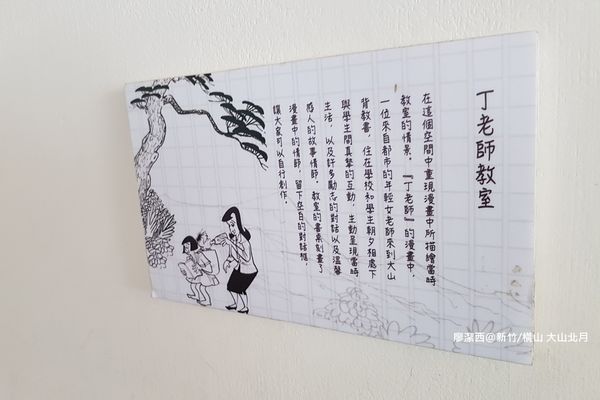 丁老師教室
在這個空間中重現漫畫中所描繪當時
教室的情景。『丁老師』的漫畫中,
一位來自都市的年輕女老師來到大山
背教書,住在學校和學生朝夕相處下
與學生間真摯的互動,生動呈現當時
生活,以及許多勵志的對話以及溫馨
感人的故事情節。教室的書桌刻畫了
漫畫中的情節,留下空白的對話框,
讓大家可以自行創作。
廖潔西@新竹/橫山 大山北月